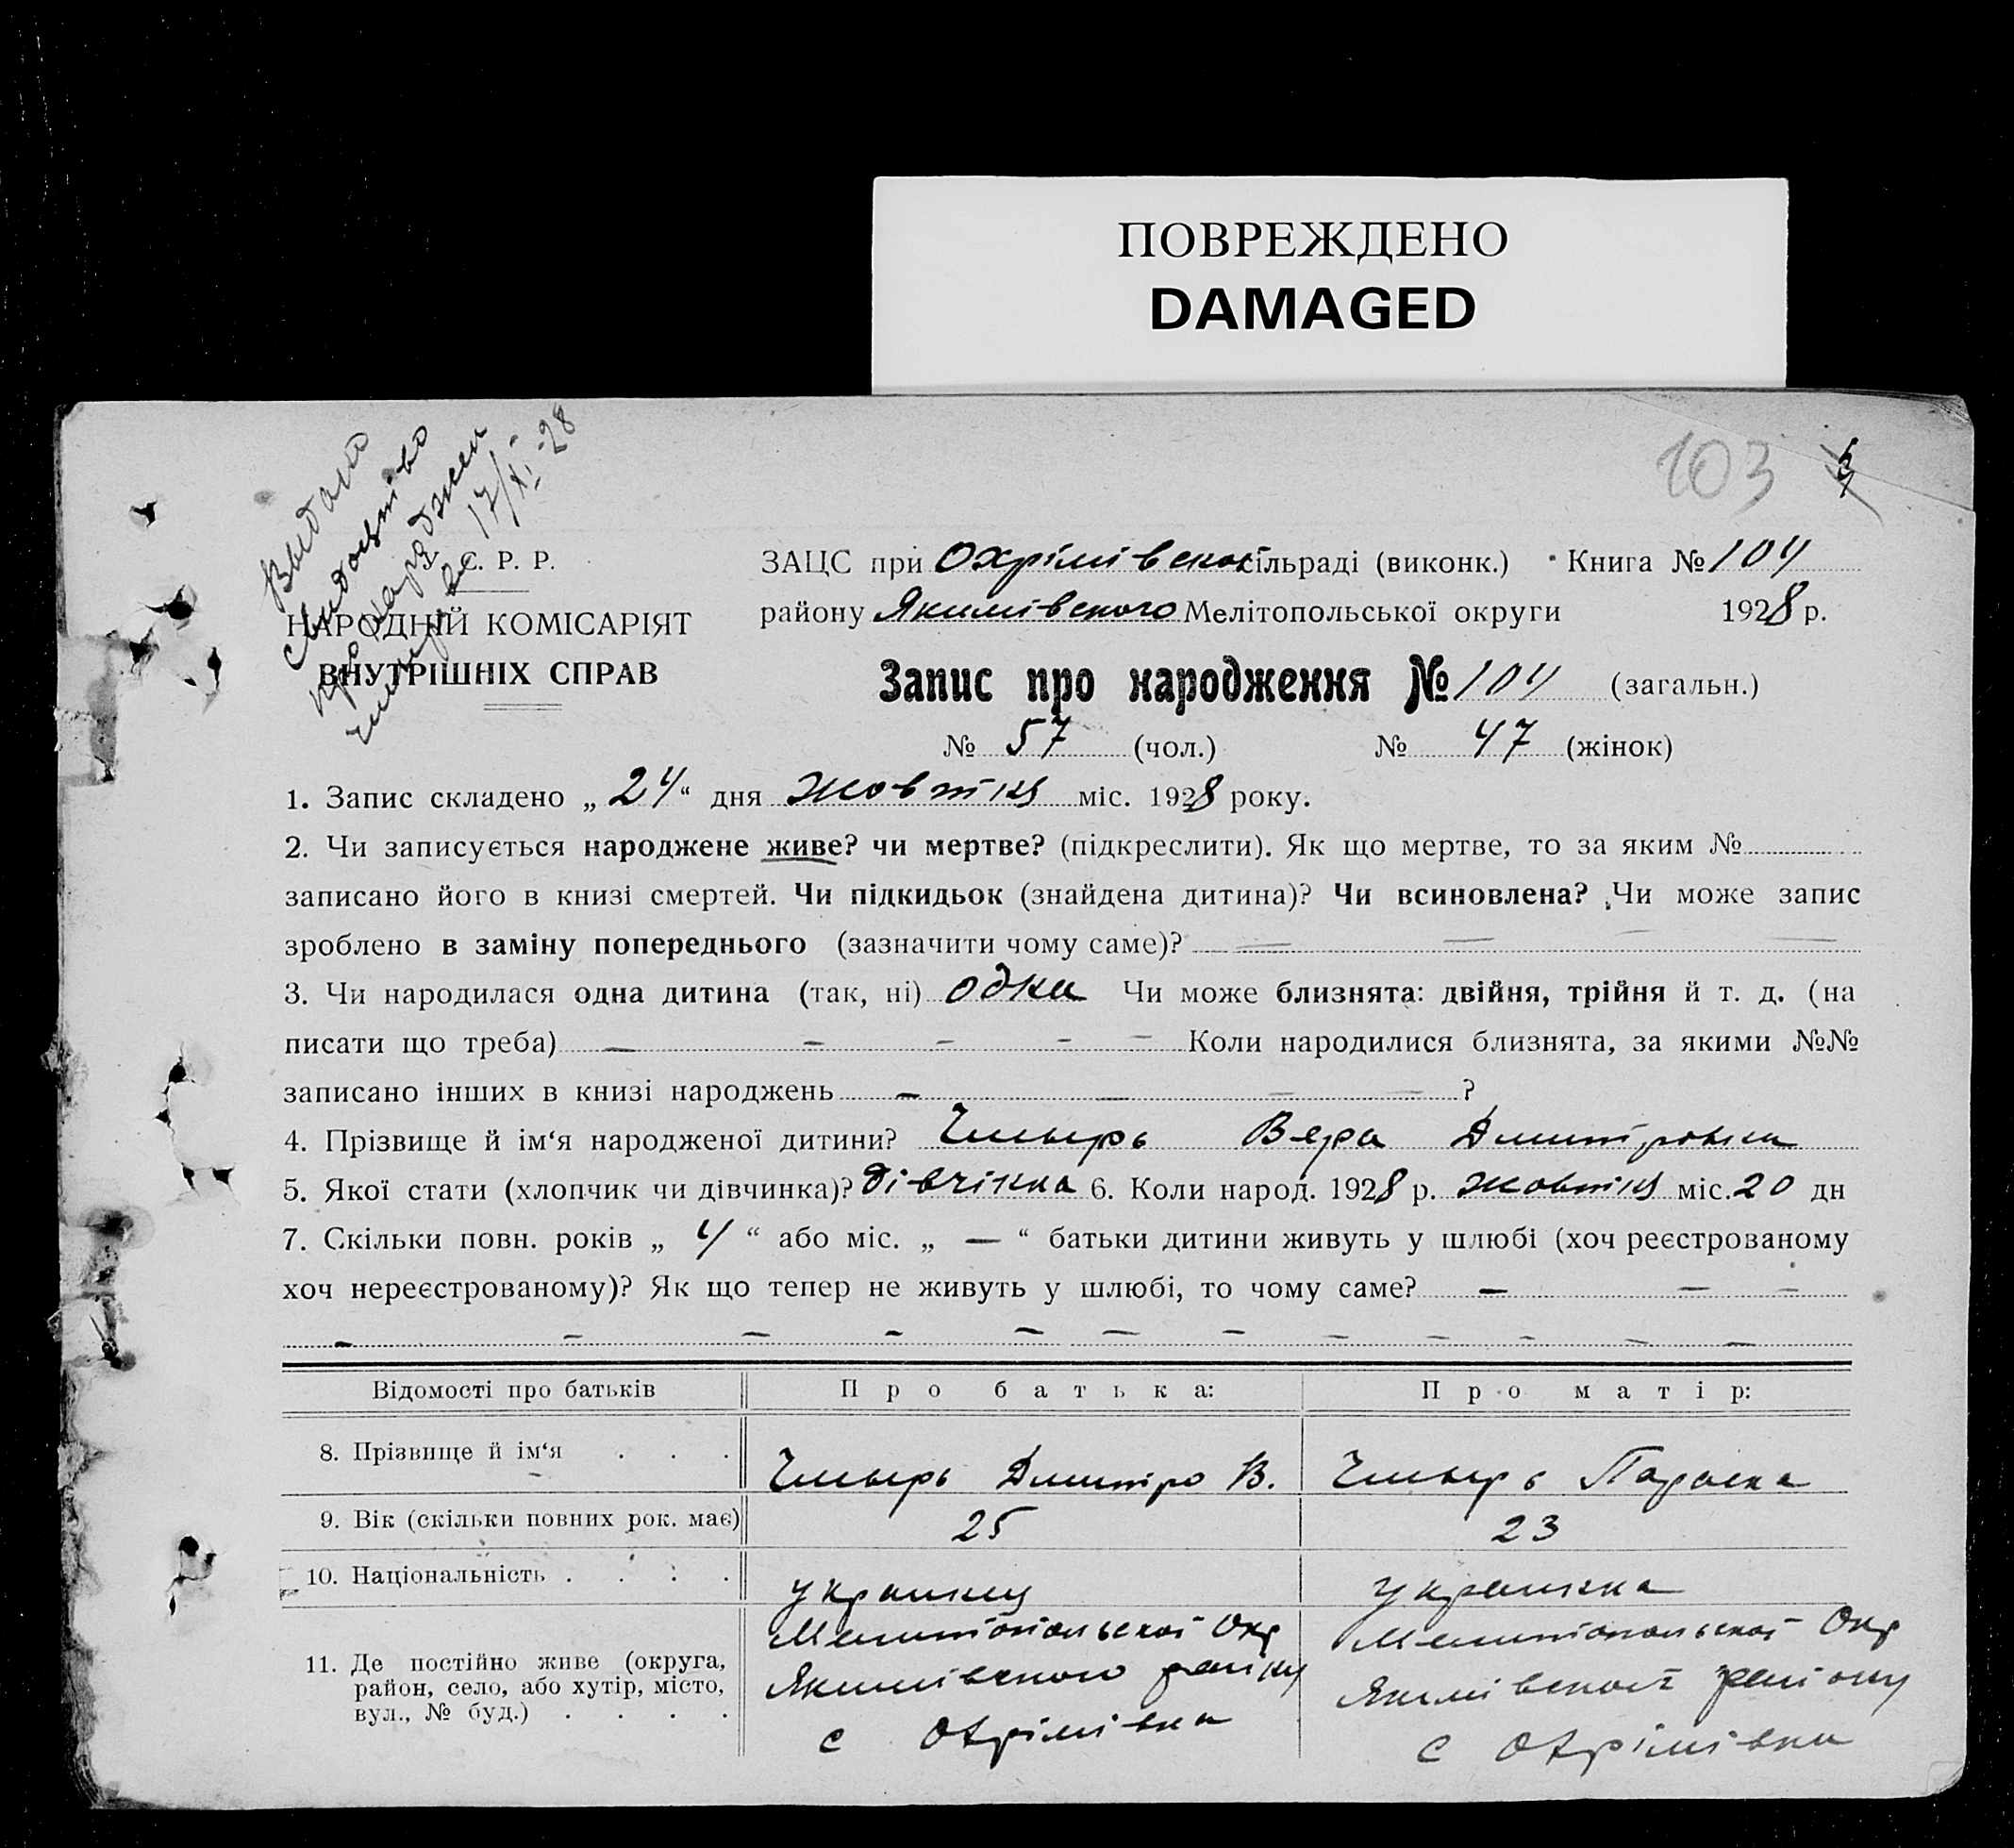 ПОВРЕЖДЕНО
DAMAGED
103
Выдано
свидоцтво
про народжен
17/XI-28
С. Р. Р.
НАРОДНІЙ КОМІСАРІЯТ
ВНУТРІШНІХ СПРАВ
ЗАЦС при Охрімівскої сільраді (виконк.) Книга № 104
району Якимівского Мелітопольської округи 1928 р.
Запис про народження № 104 (загальн.)
№ 57 (чол.) № 47 (жінок)
1. Запис складено „ 24 “ дня жовтня міс. 1928 року.
2. Чи записується народжене живе? чи мертве? (підкреслити). Як що мертве, то за яким №
записано його в книзі смертей. Чи підкидьок (знайдена дитина)? Чи всиновлена? Чи може запис
зроблено в заміну попереднього (зазначити чому саме)? — — — —
3. Чи народилася одна дитина (так, ні) одна Чи може близнята: двійня, трійня й т. д. (на
писати що треба) — — — — — Коли народилися близнята, за якими №№
записано інших в книзі народжень — — — — ?
4. Прізвище й ім‘я народженої дитини? Чмырь Вера Дмитровна
5. Якої стати (хлопчик чи дівчинка)? дівчінка 6. Коли народ. 1928 р. жовтня міс. 20 дн
7. Скільки повн. років „ 4 “ або міс. „ — “ батьки дитини живуть у шлюбі (хоч реєстрованому
хоч нереєстрованому)? Як що тепер не живуть у шлюбі, то чому саме? — — —
— — — — — — — — — — — —
Відомості про батьків Про батька: Про матір:
8. Прізвище й ім‘я . . . Чмырь Дмитро В. Чмырь Параска
9. Вік (скільки повних рок. має) 25 23
10. Національність . . . . украинец украинка
11. Де постійно живе (округа, район, село, або хутір, місто, вул., № буд.) . . . .
Мелитопольскої Окр
Якимівского району
с Охрімівка
Мелитопольскої Окр
Якимівскої району
с Охрімівка